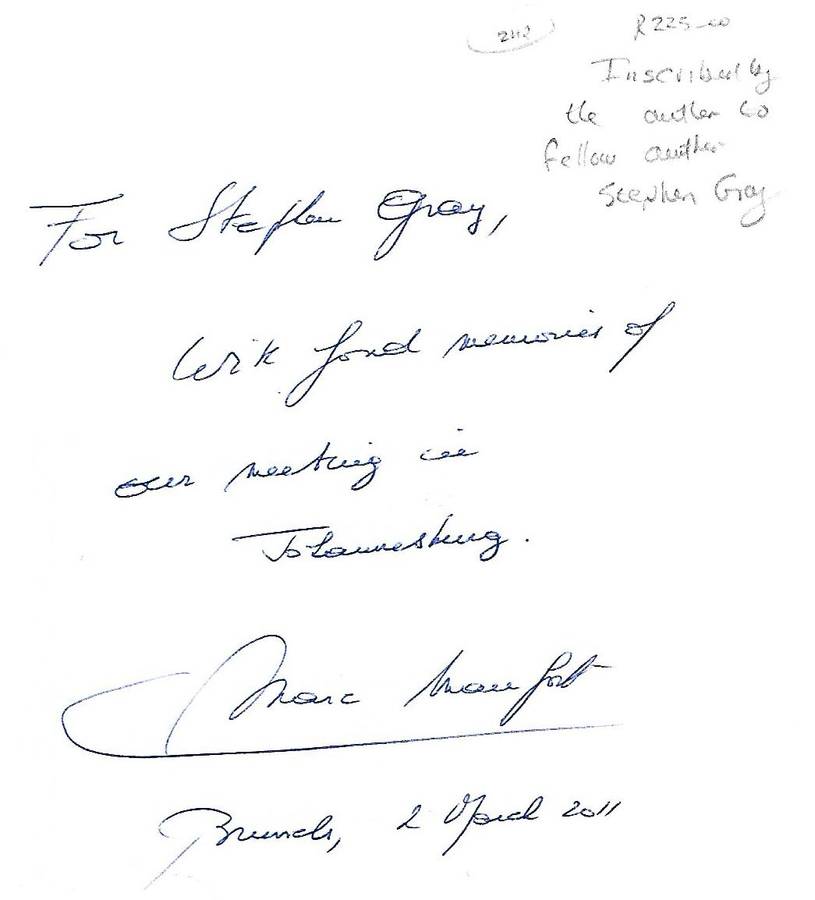 2112
R225-00
Inscribed by
the author to
fellow author
Stephen Gray
For Stephen Gray,
With fond memories of
our meeting in
Johannesburg.
Marc Maufort
Brussels, 2 March 2011